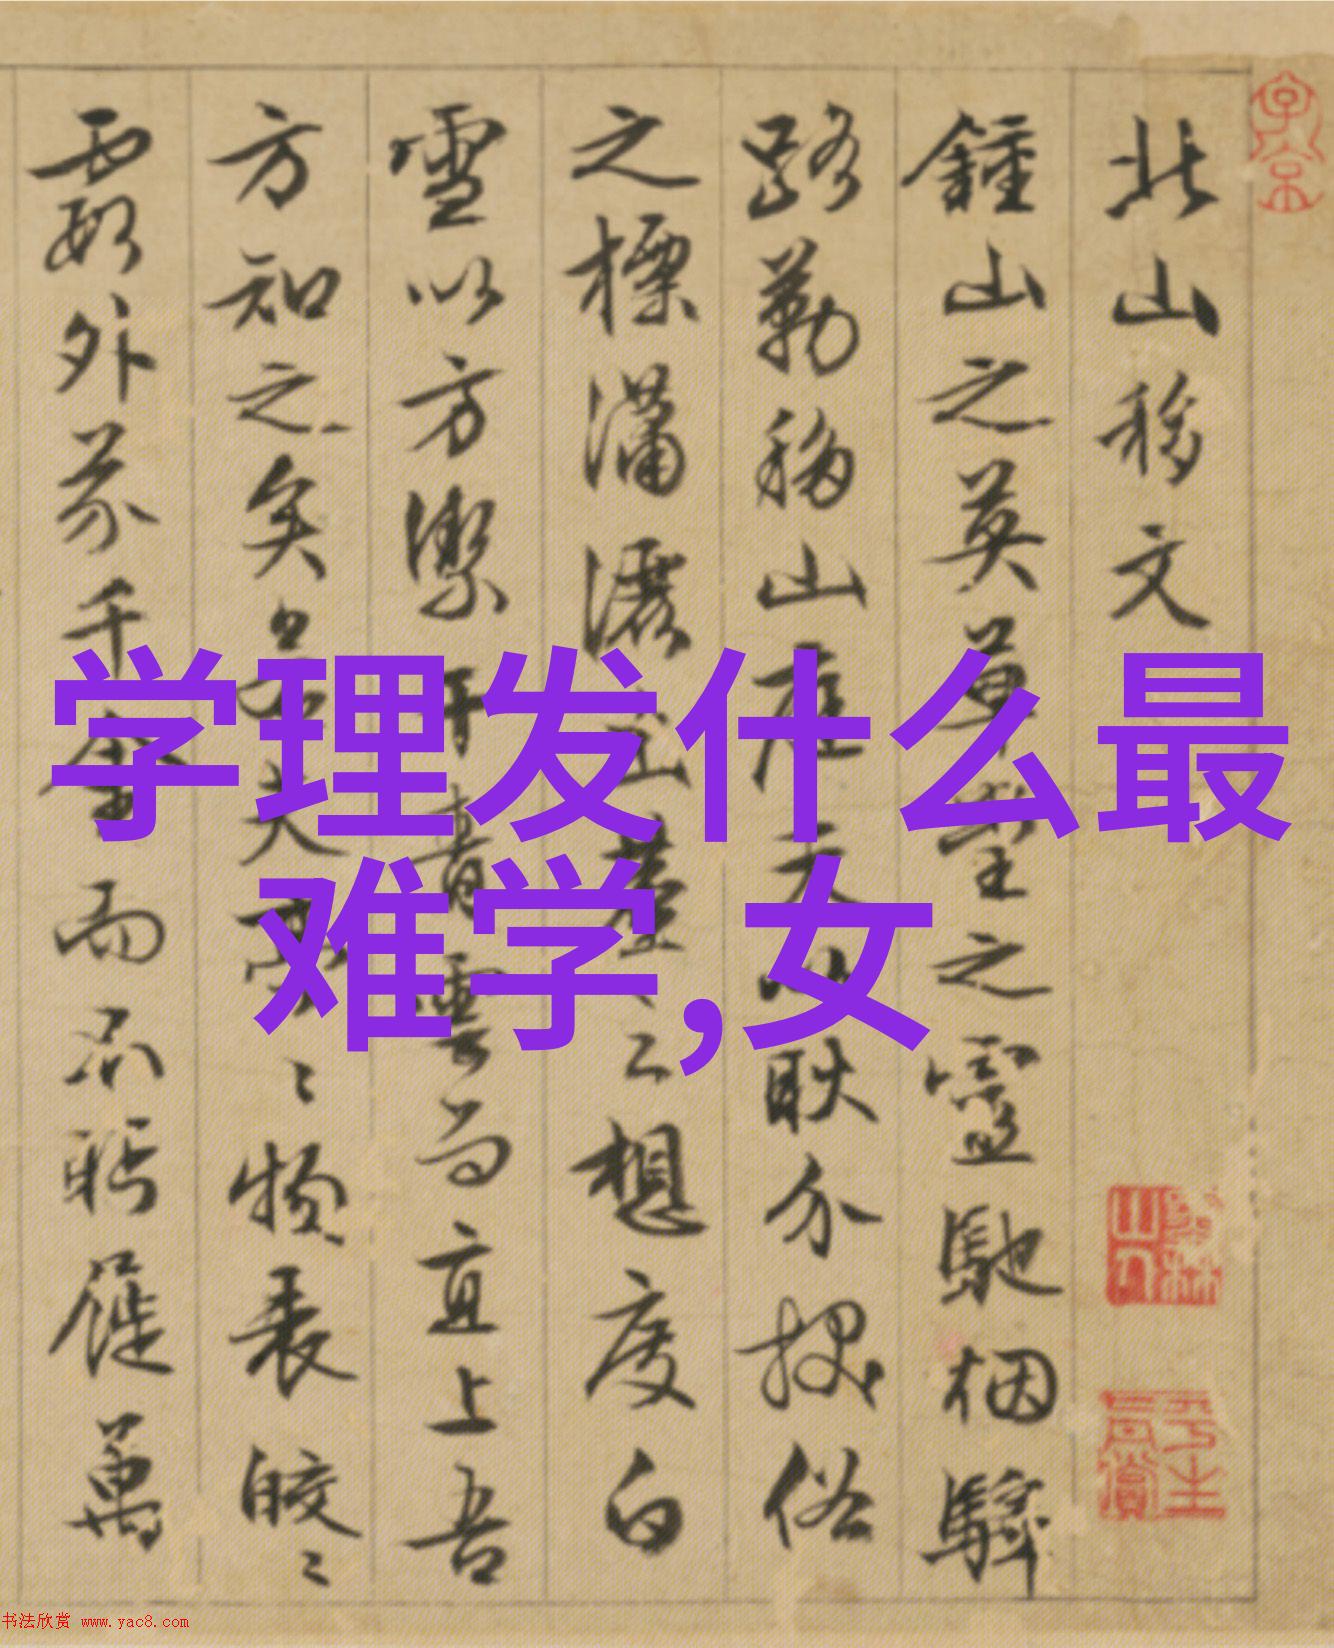 北山移文
鍾山之英草堂之靈馳烟驛
路勒移山庭夫以耿介拔俗
之標瀟灑出塵之想度白
雪以方潔干青雲而直上吾
方知之矣若其亭〻物表皎〻
霞外芥千金而不眄屣萬
学理发什么最
难学,女
书法欣赏 www.yac8.com